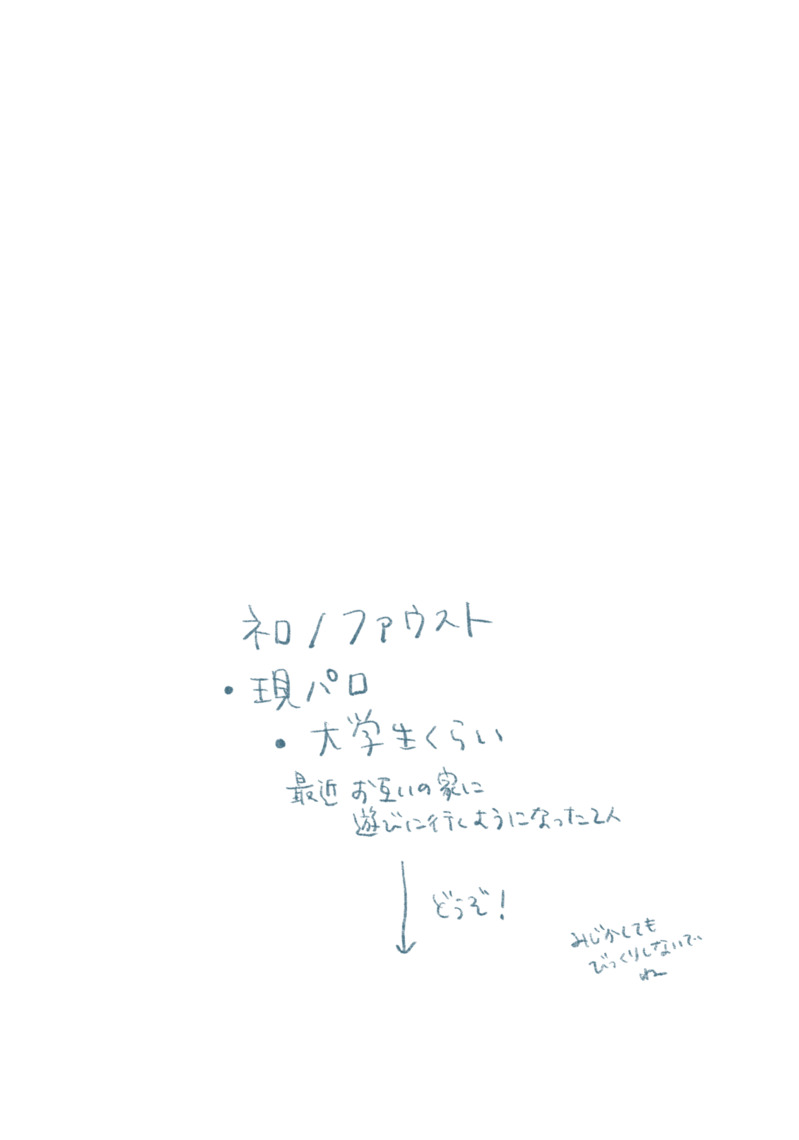 ネロ / ファウスト
・現パロ
・大学生くらい
最近 お互いの家に
遊びに行くようになった2人
どうぞ!
みじかくても
びっくりしないで
ねー